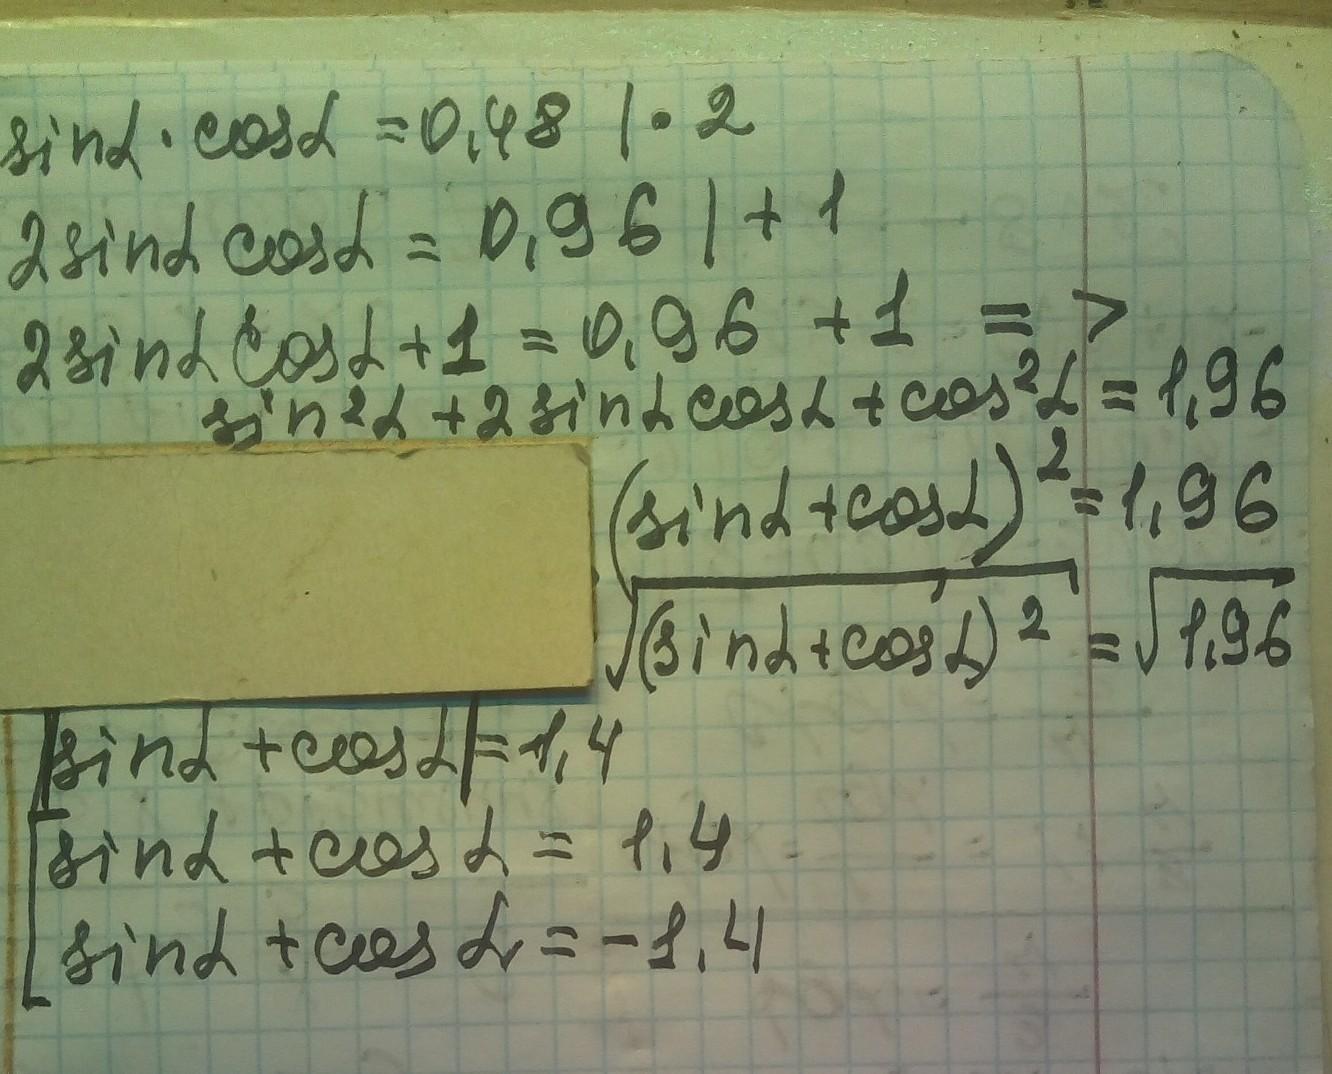 sinα · cosα = 0,48 | · 2
2sinα cosα = 0,96 | + 1
2sinα cosα + 1 = 0,96 + 1 =>
sin²α + 2sinα cosα + cos²α = 1,96
(sinα + cosα)² = 1,96
√(sinα + cosα)² = √1,96
|sinα + cosα| = 1,4
[sinα + cosα = 1,4
sinα + cosα = -1,4